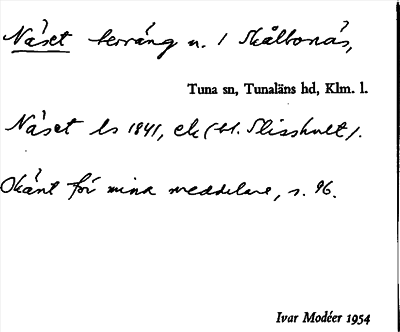 Näset terräng n. i Skålbonäs,
Tuna sn, Tunaläns hd, Klm. l.
Näset ls 1841, ek (bl. Slisshult).
Okänt för mina meddelare, s. 96.
Ivar Modéer 1954